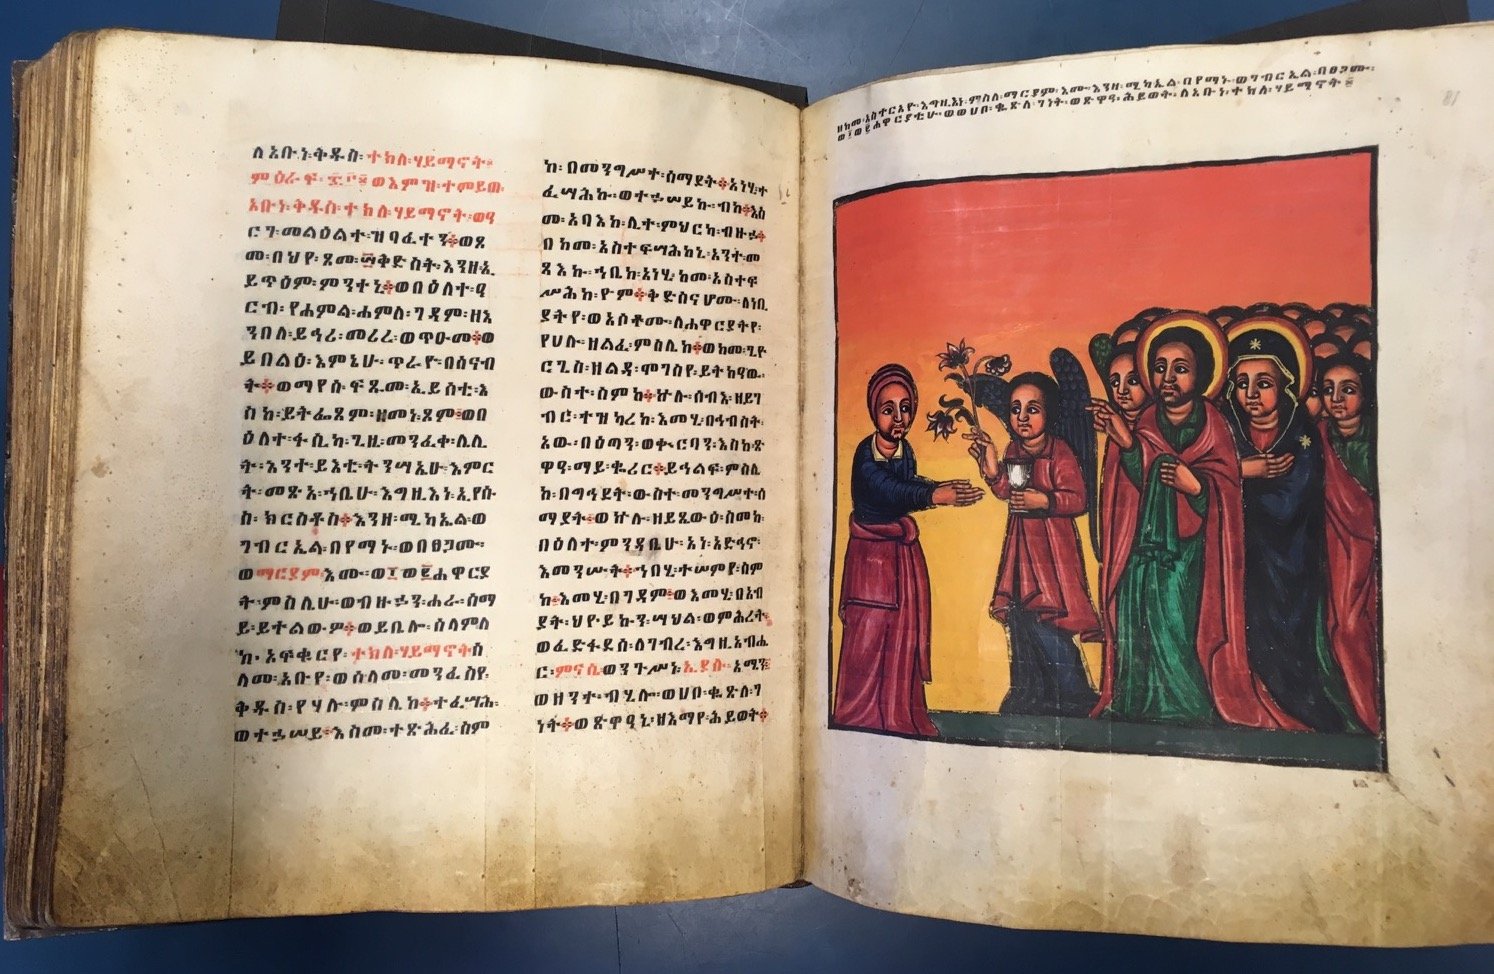 ለአቡነ፡ቅዱስ፡ተክለ፡ሃይማኖት።
ምዕራፍ፡ ወእምዝ፡ተመይጠ፡
አቡነ፡ቅዱስ፡ተክለ፡ሃይማኖት፡ወዓ
ርገ፡መልዕልተ፡ዝባፈተን፡ወጾ
መ፡በህየ፡ጾመ፡፵ቅድስት፡እንዘ፡ኢ
ይጥዕም፡ምንተኒ፡ወበዕለተ፡ዓ
ርብ፡የሐምል፡ሐምለ፡ገዳም፡ዘእ
ንበለ፡ይኅሪ፡መሪረ፡ወጥዑመ፡ወ
ይበልዕ፡እምኔሁ፡ጥራዮ፡በሰናብ
ት፡ወማየሰ፡ፍጹመ፡ኢይሰቲ፡እ
ስከ፡ይትፌጸም፡ዘመነ፡ጾም፡ወበ
ዕለተ፡ፋሲካ፡ጊዜ፡መንፈቀ፡ሌሊ
ት፡እንተ፡ይእቲ፡ትንሣኤሁ፡እምር
ት፡መጽአ፡ኀቤሁ፡እግዚእነ፡ኢየሱ
ስ፡ክርስቶስ፡እንዘ፡ሚካኤል፡ወ
ገብርኤል፡በየማኑ፡ወበፀጋሙ፡
ወማርያም፡እሙ፡ወ፲ወ፪ሐዋርያ
ት፡ምስሌሁ፡ወብዙኃን፡ሐራ፡ሰማ
ይ፡ይተልውዎ፡ወይቤሎ፡ሰላምለ
ከ፡ኦፍቁርየ፡ተክለ፡ሃይማኖትስ
ለመ፡አቡየ፡ወሰላመ፡መንፈስየ፡
ቅዱስ፡የሃሉ፡ምስሌከ፡ተፈሣሕ፡
ወተኃሠይ፡እስመ፡ተጽሕፈ፡ስም
ከ፡በመንግሥተ፡ሰማያት፡አነሂ፡ተ
ፈሣሕኩ፡ወተኃሠይኩ፡ብከ፡እስ
መ፡አባእከ፡ሊተ፡ምህርካ፡ብዙኃ፡
በከመ፡አስተፍሣሕከኒ፡አንተ፡መ
ጻእኩ፡ኀቤከ፡አነሂ፡ከመ፡አስተፍ
ሥሕከ፡ዮም፡ቅድስናሆሙ፡ለነቢ
ያትየ፡ወአሶቶሙ፡ለሐዋርያትየ፡
የሀሉ፡ዘልፈ፡ምስሌከ፡ወከመ፡ጊዮ
ርጊስ፡ዘልዳ፡ሞገስየ፡ይትከሃሠ፡
ውስተ፡ስምከ፡ኵሉ፡ሰብእ፡ዘይገ
ብር፡ተዝካረከ፡እመሂ፡በኅብስት፡
አው፡በዕጣን፡ወቍርባን፡እስከጽ
ዋዓ፡ማይ፡ቈሪር፡ይኀልፍ፡ምስሌ
ከ፡በግኅደት፡ውስተ፡መንግሥተ፡ሰ
ማያት፡ወኵሉ፡ዘይጼውዕ፡ስመከ፡
በዕለተ፡ምንዳቤሁ፡አነ፡አድኅኖ፡
እመንሡት፡ኀበሂ፡ተሠምየ፡ስም
ከ፡እመሂ፡በገዳም፡ወእመሂ፡በአብ
ያት፡ህየ፡ይኩን፡ሣህል፡ወምሕረት፡
ወፈድፋደሰ፡ለገብረ፡እግዚአብሔ
ር፡ምናሴ፡ወንጉሥነ፡ኢያሱ፡አሜን፡
ወዘንተ፡ብሂሎ፡ወሀቦ፡ጼጌለ፡ገ
ነት፡ወጽዋዓኒ፡ዘእማየ፡ሕይወት፡
ዘከመ፡አስተርአዮ፡እግዚእነ፡ምስለ፡ማርያም፡እሙ፡እንዘ፡ሚካኤል፡በየማኑ፡ወገብርኤል፡በፀጋሙ፡
ወ፲ወ፪ሐዋርያቲሁ፡ወወሀቦ፡ጼጌለ፡ገነት፡ወጽዋዓ፡ሕይወት፡ለአቡነ፡ተክለ፡ሃይማኖት፡
81